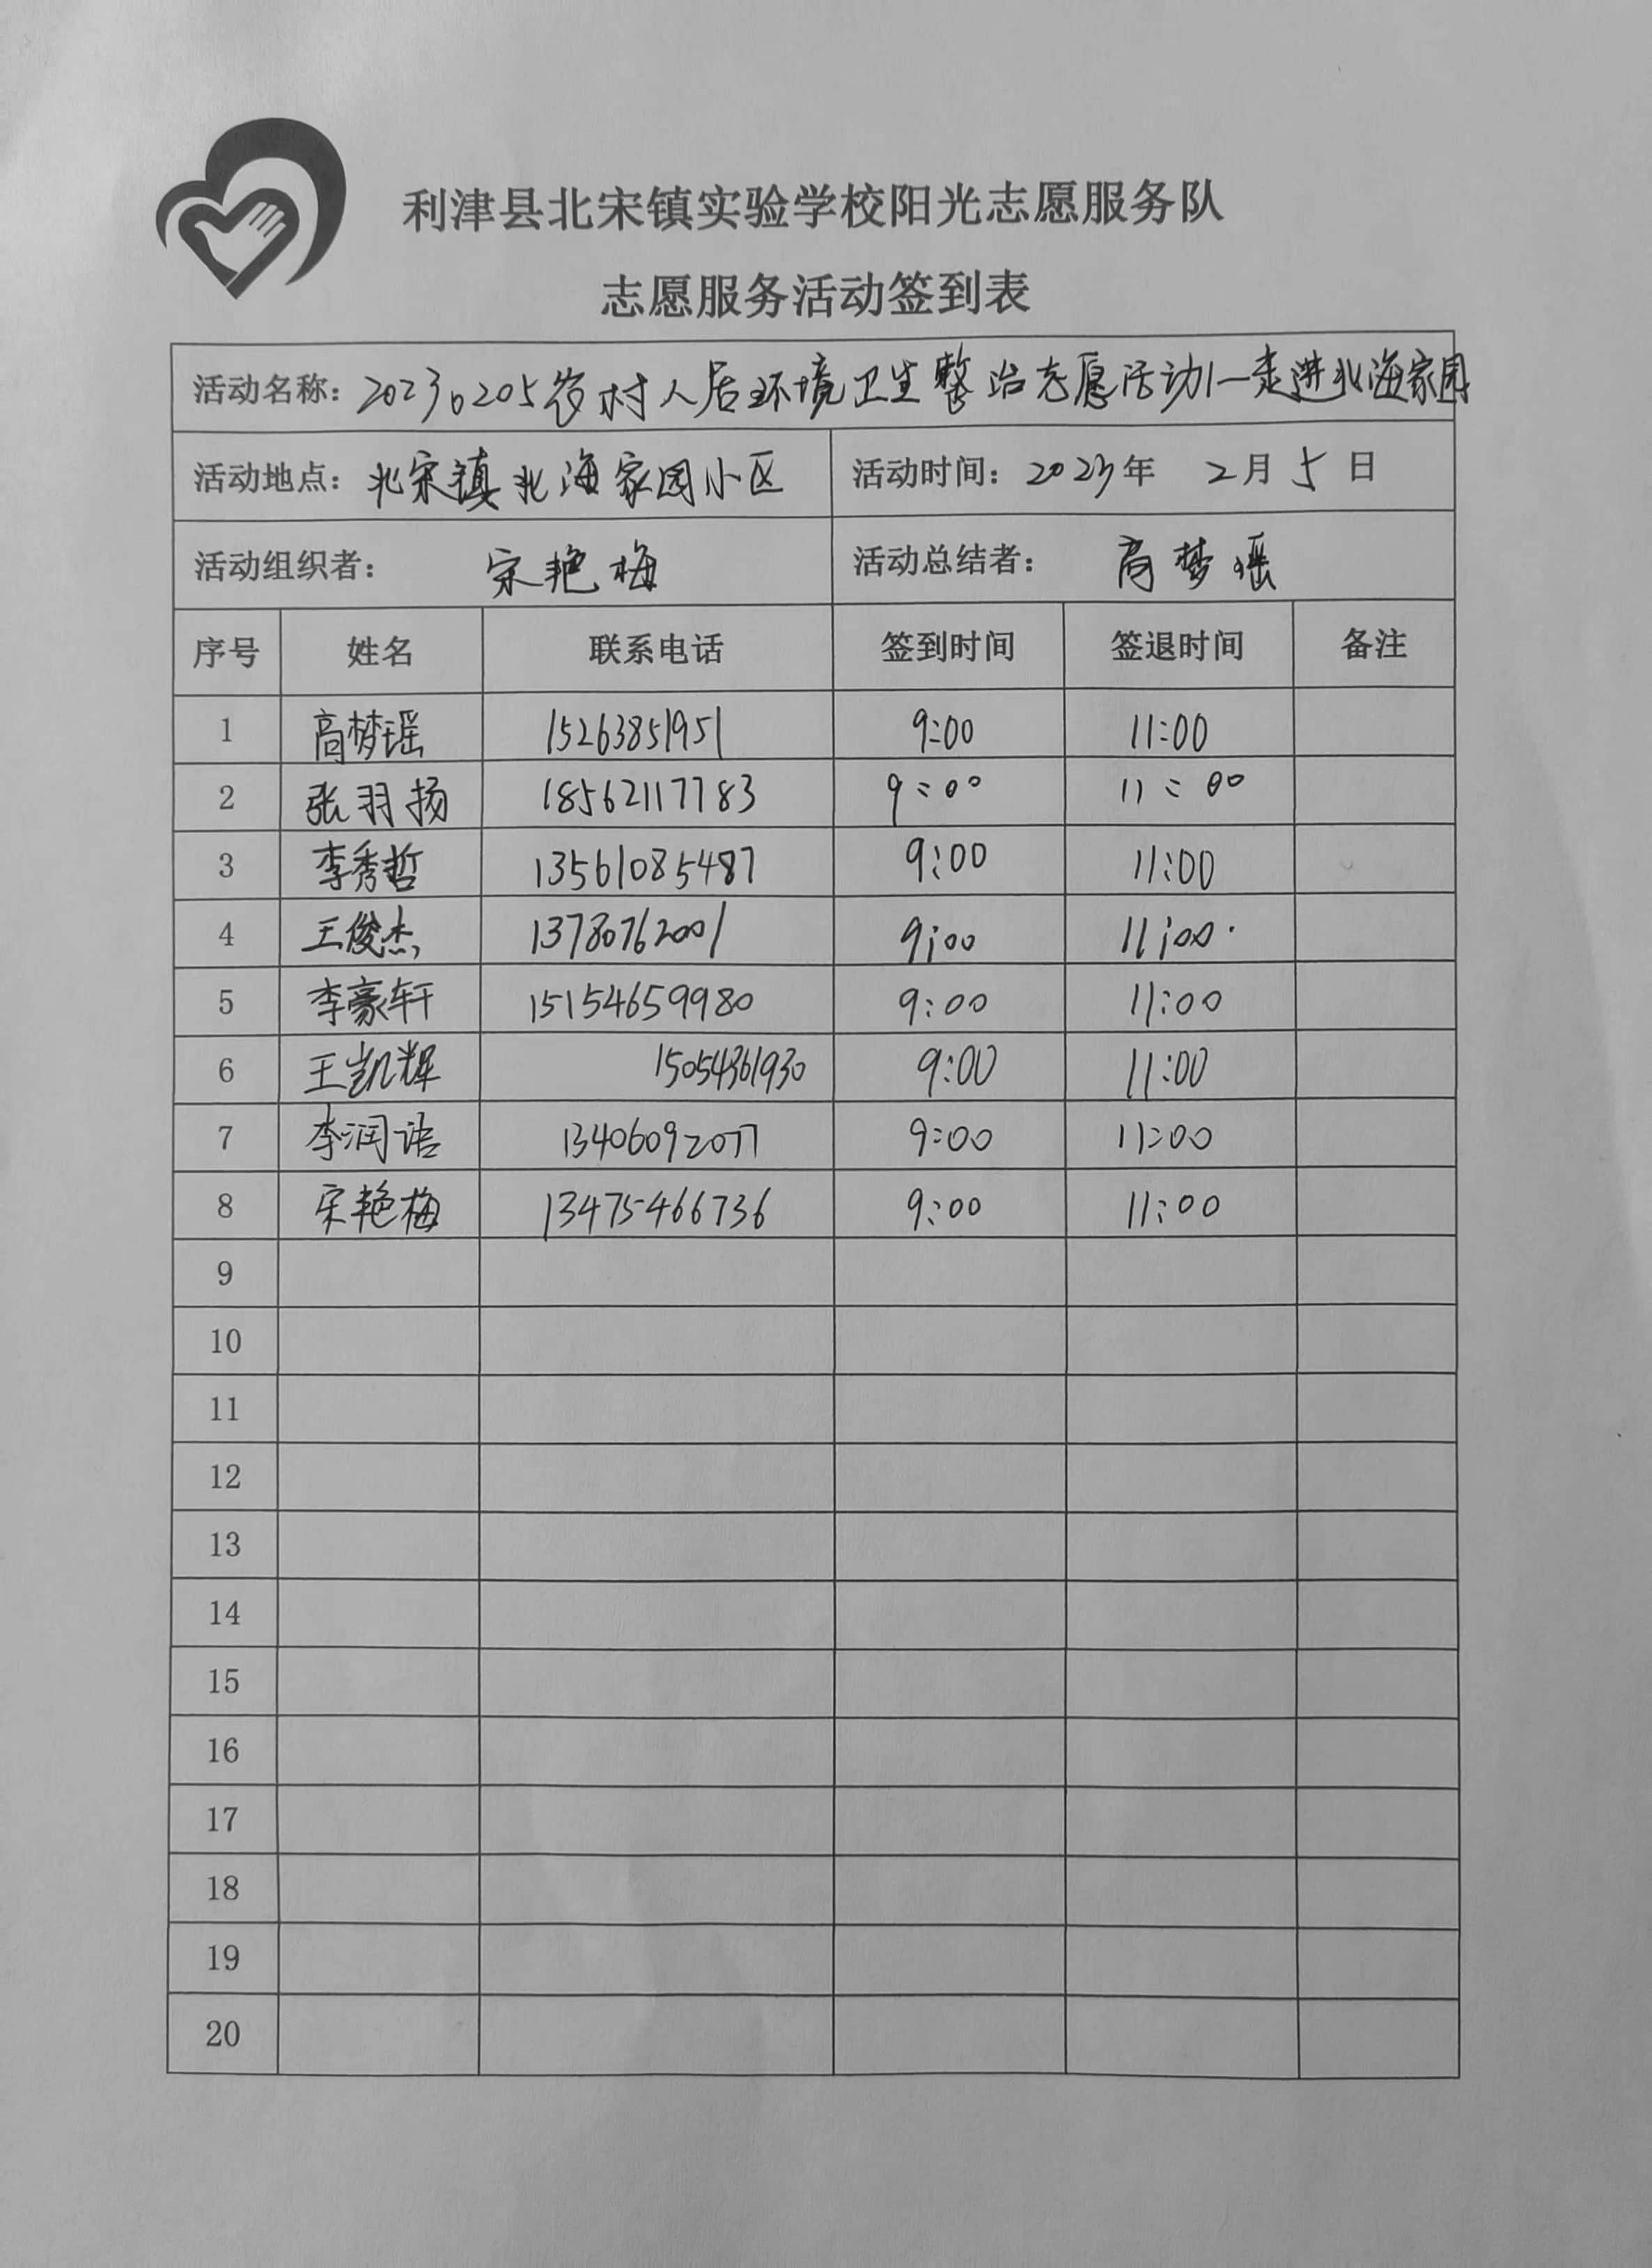 利津县北宋镇实验学校阳光志愿服务队
志愿服务活动签到表
活动名称：20230205农村人居环境卫生整治志愿活动1—走进北海家园
活动地点：北宋镇北海家园小区 活动时间：2023年 2月5日
活动组织者： 宋艳梅 活动总结者： 高梦瑶
序号 姓名 联系电话 签到时间 签退时间 备注
1 高梦瑶 15263851951 9:00 11:00
2 张羽扬 18562117783 9:00 11:00
3 李秀哲 13561085487 9:00 11:00
4 王俊杰 13780762001 9:00 11:00
5 李豪轩 15154659980 9:00 11:00
6 王凯辉 15054361930 9:00 11:00
7 李润语 13406092077 9:00 11:00
8 宋艳梅 13475466736 9:00 11:00
9
10
11
12
13
14
15
16
17
18
19
20